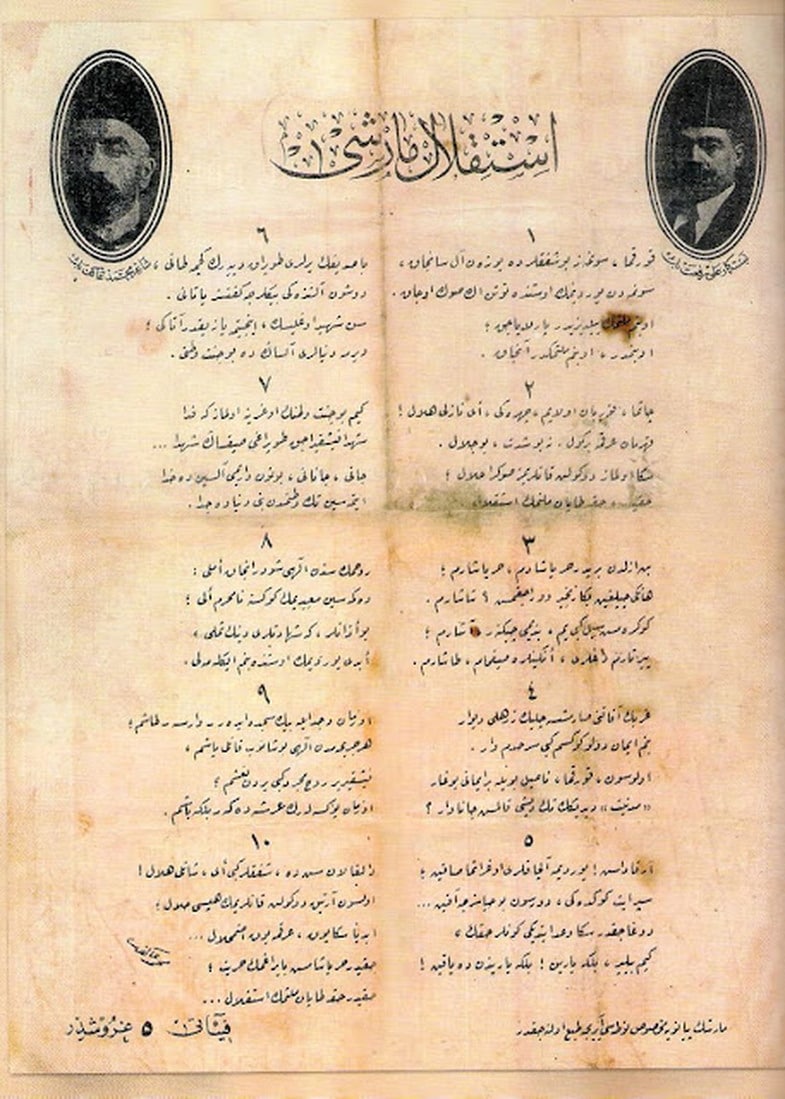 استقلال مارشی
١
قورقما ، سونمز بو شفقلرده یوزن آل سانجاق ،
سونمەدن یوردیمك اوستنده توتن اڭ صوڭ اوجاق .
او بنم ملتمڭ ییلدیزیدر پارلایاجق ؛
او بنمدر ، او بنم ملتمكدر آنجاق .
٢
چاتما ، قوربان اولایم ، چهره ڭی ، ای نازلی هلال !
قهرمان عرقمه بر كول . نه بو شدت ، بو جلال .
سكا اولماز دوكولن قانلریمز صوكرا حلال ؛
حقیدر ، حقه طاپان ملتمك استقلال
٣
بن ازلدن بریدر حر یاشادم ، حر یاشارم ؛
هانكی چیلغین بكا زنجیر ووراجقمش ؟ شاشارم .
كوكره مش سیل كبی یم ، بندیمی چیكنر آشارم ؛
ییرتارم داغلری ، انكینلره صیغمام ، طاشارم .
٤
غربك آفاقنی صارمشسه چلیك زرهلی دیوار
بنم ایمان دولو كوكسم كبی سرحدم وار .
اولوسون ، قورقما ، ناصیل بویله بر ایمانی بوغار
« مدنیت » دیدیكك تك دیشی قالمش جاناوار ؟
٥
آرقاداش ! یوردیمه آلچاقلری اوغراتما صاقین ؛
سپر ایت كوكده ڭی ، دورسون بو حیاسزجه آقین ...
دوغاجقدر سكا وعد ایتدیكی كونلر حقك ،
كیم بیلیر ، بلكه یارین ! بلكه یاریندن ده یاقین !
٦
باصدیغك یرلری طوپراق دییەرك كچمه طانی ،
دوشون آلتنده كی بیكلرجه كفنسز یاتانی .
سن شهید اوغلیسك ، اینجیتمه یازیقدر آتاكی ؛
ویرمه دنیالری آلساڭ ده بو جنت وطنی .
٧
كیم بو جنت وطنك اوغرینه اولماز كه فدا
شهدا فیشقیراجق طوپراغی صیقساڭ شهدا ...
جانی ، جانانی ، بوتون واریمی آلسین ده خدا
ایتمه سین تك وطنمدن بنی دنیاده جدا .
٨
روحمك سندن الهی شودر آنجاق املی :
دوكمه سین معبدیمك كوكسنه نامحرم الی ؛
بو اذانلر ، كه شهادتلری دینك تملی ،
ابدی یوردیمك اوستنده بنم ایكله ملی .
٩
او زمان وجد ایله بیك سجده ایدەر وارسه طاشم ؛
هر جریحه مدن الهی بوشانوب قانلی یاشم ،
فیشقیریر روح مجرد كبی یردن نعشم ؛
او زمان یوكسلەرك عرشه دكر بلكه باشم .
١٠
دالغالان سن ده ، شفقلر كبی ای ، شانلی هلال !
اولسون آرتیق دوكولن قانلریمك هپسی حلال ؛
ابدیاً سكا یوق ، عرقمه یوق اضمحلال ...
حقیدر حر یاشامش بایراغمك حریت ؛
حقیدر حقه طاپان ملتمك استقلال ...
مارشك پیانویه مخصوص نوطه سی آیریجه طبع اولنه جقدر
فیئاتی ٥ غروشدر